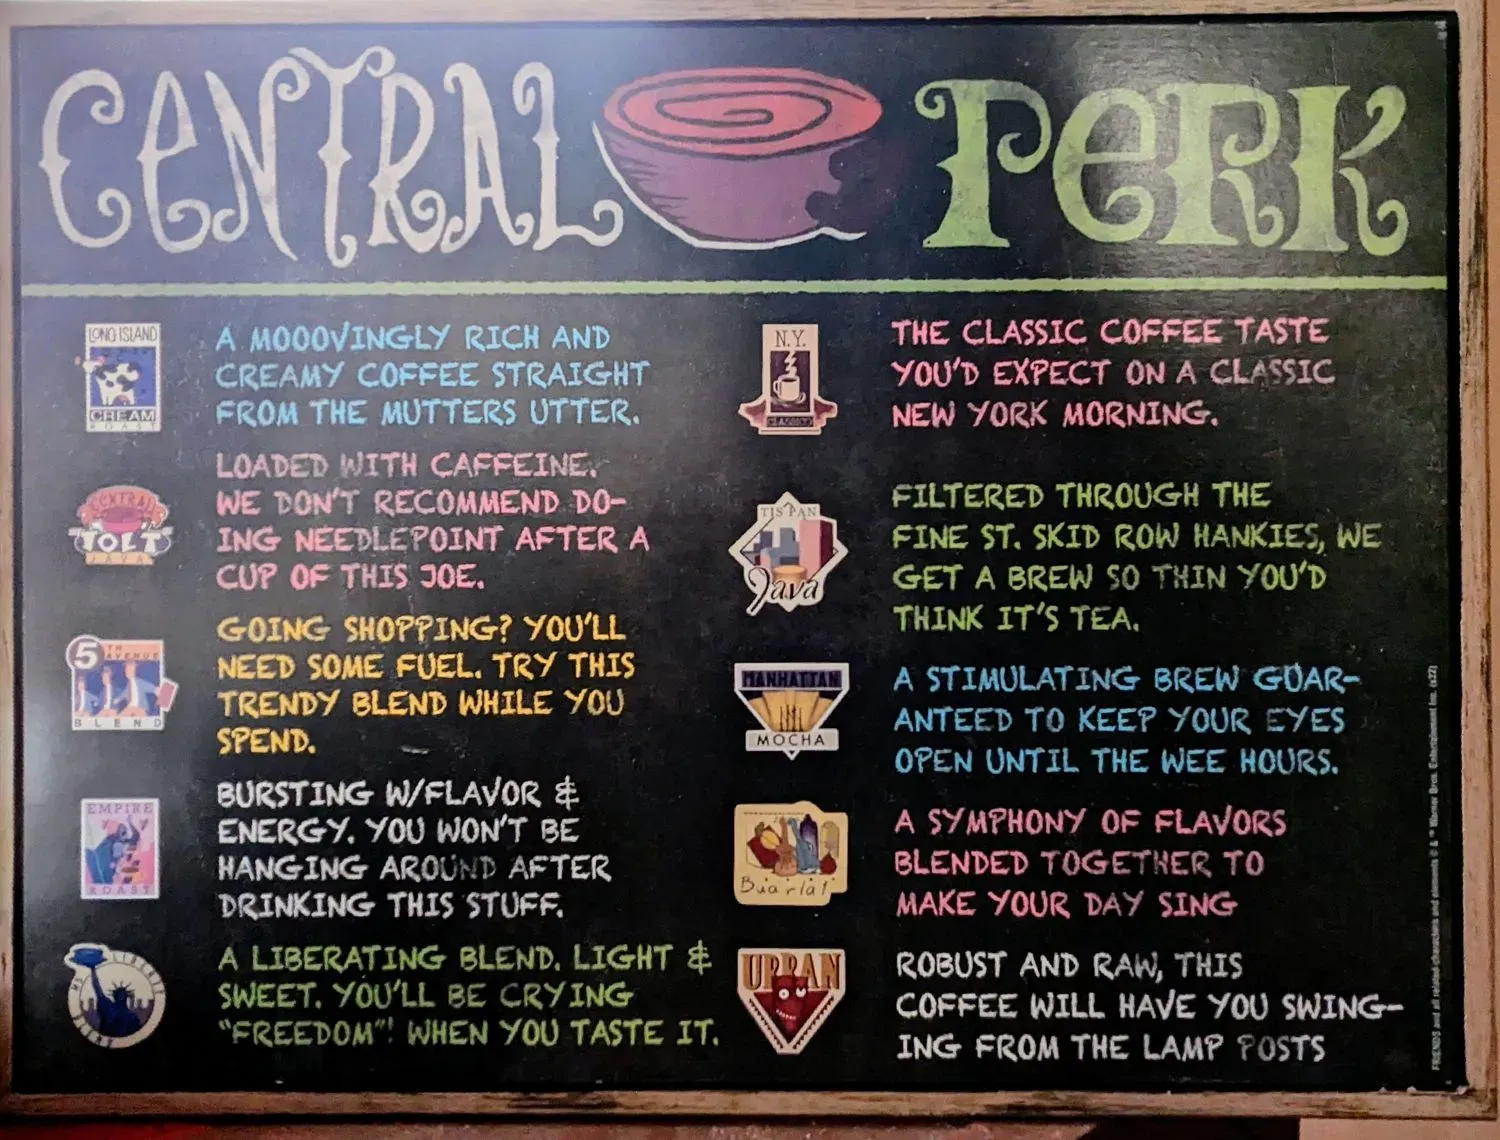 CENTRAL PERK
LONG ISLAND
CREAM
ROAST
A MOOOVINGLY RICH AND
CREAMY COFFEE STRAIGHT
FROM THE MUTTERS UTTER.
CENTRAL
JOLT
JAVA
LOADED WITH CAFFEINE.
WE DON'T RECOMMEND DO-
ING NEEDLEPOINT AFTER A
CUP OF THIS JOE.
5TH
AVENUE
BLEND
GOING SHOPPING? YOU'LL
NEED SOME FUEL. TRY THIS
TRENDY BLEND WHILE YOU
SPEND.
EMPIRE
ROAST
BURSTING W/FLAVOR &
ENERGY. YOU WON'T BE
HANGING AROUND AFTER
DRINKING THIS STUFF.
LIBERTY
A LIBERATING BLEND. LIGHT &
SWEET. YOU'LL BE CRYING
"FREEDOM"! WHEN YOU TASTE IT.
N.Y.
CLASSICO
THE CLASSIC COFFEE TASTE
YOU'D EXPECT ON A CLASSIC
NEW YORK MORNING.
TIS PAN
Java
FILTERED THROUGH THE
FINE ST. SKID ROW HANKIES, WE
GET A BREW SO THIN YOU'D
THINK IT'S TEA.
MANHATTAN
MOCHA
A STIMULATING BREW GUAR-
ANTEED TO KEEP YOUR EYES
OPEN UNTIL THE WEE HOURS.
A SYMPHONY OF FLAVORS
BLENDED TOGETHER TO
MAKE YOUR DAY SING
URBAN
ROBUST AND RAW, THIS
COFFEE WILL HAVE YOU SWING-
ING FROM THE LAMP POSTS
FRIENDS and all related characters and elements © & ™ Warner Bros. Entertainment Inc. (s22)